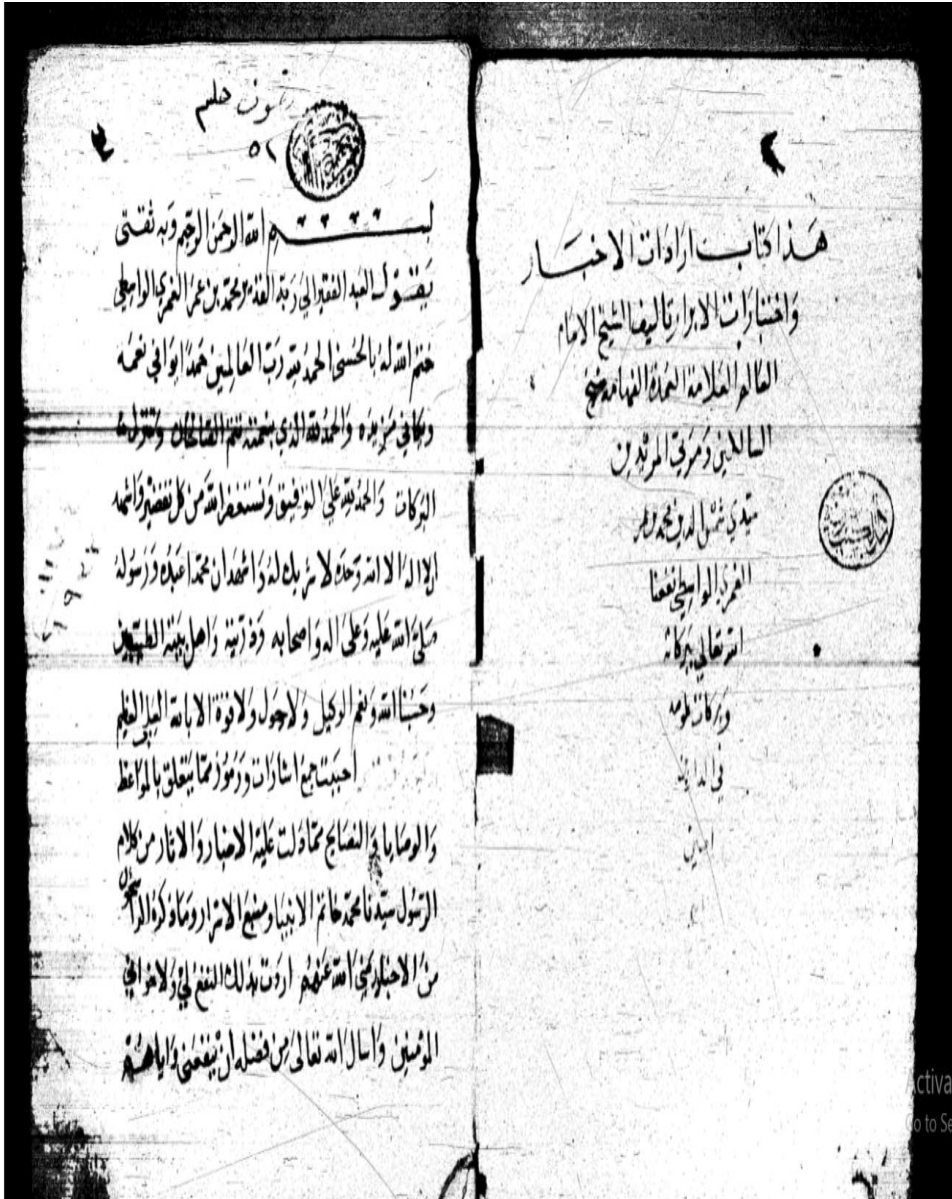 هذا كتاب ارادات الاخيار
واختيارات الابرار تاليف الشيخ الامام
العالم العلامة العمدة الفهامة
السالكين ومربي المريدين
سيدي شمس الدين محمد بن عمر
الغمري الواسطي نفعنا
الله تعالى ببركاته
وبركات علومه
في الدارين
امين
٥٢
بسم الله الرحمن الرحيم وبه ثقتي
يقول العبد الفقير الى ربه محمد بن عمر الغمري الواسطي
ختم الله له بالحسنى الحمد لله رب العالمين حمدا يوافي نعمه
ويكافي مزيده والحمد لله الذي بنعمته تتم الصالحات وتنزل
البركات والحمد لله على التوفيق ونستغفر الله من كل تقصير واشهد
ان لا اله الا الله وحده لا شريك له واشهد ان محمدا عبده ورسوله
صلى الله عليه وعلى اله واصحابه وذريته واهل بيته الطيبين
وحسبنا الله ونعم الوكيل ولا حول ولا قوة الا بالله العلي العظيم
احببت اجمع اشارات ورموز مما يتعلق بالمواعظ
والوصايا والنصايح مما دلت عليه الاخبار والاثار من كلام
الرسول سيدنا محمد خاتم الانبيا ومنبع الاسرار وما ذكره
من الاخيار رضي الله عنهم اردت بذلك النفع لي ولاخواني
المؤمنين واسال الله تعالى من فضله ان ينفعني واياهم
Activa
Go to Se